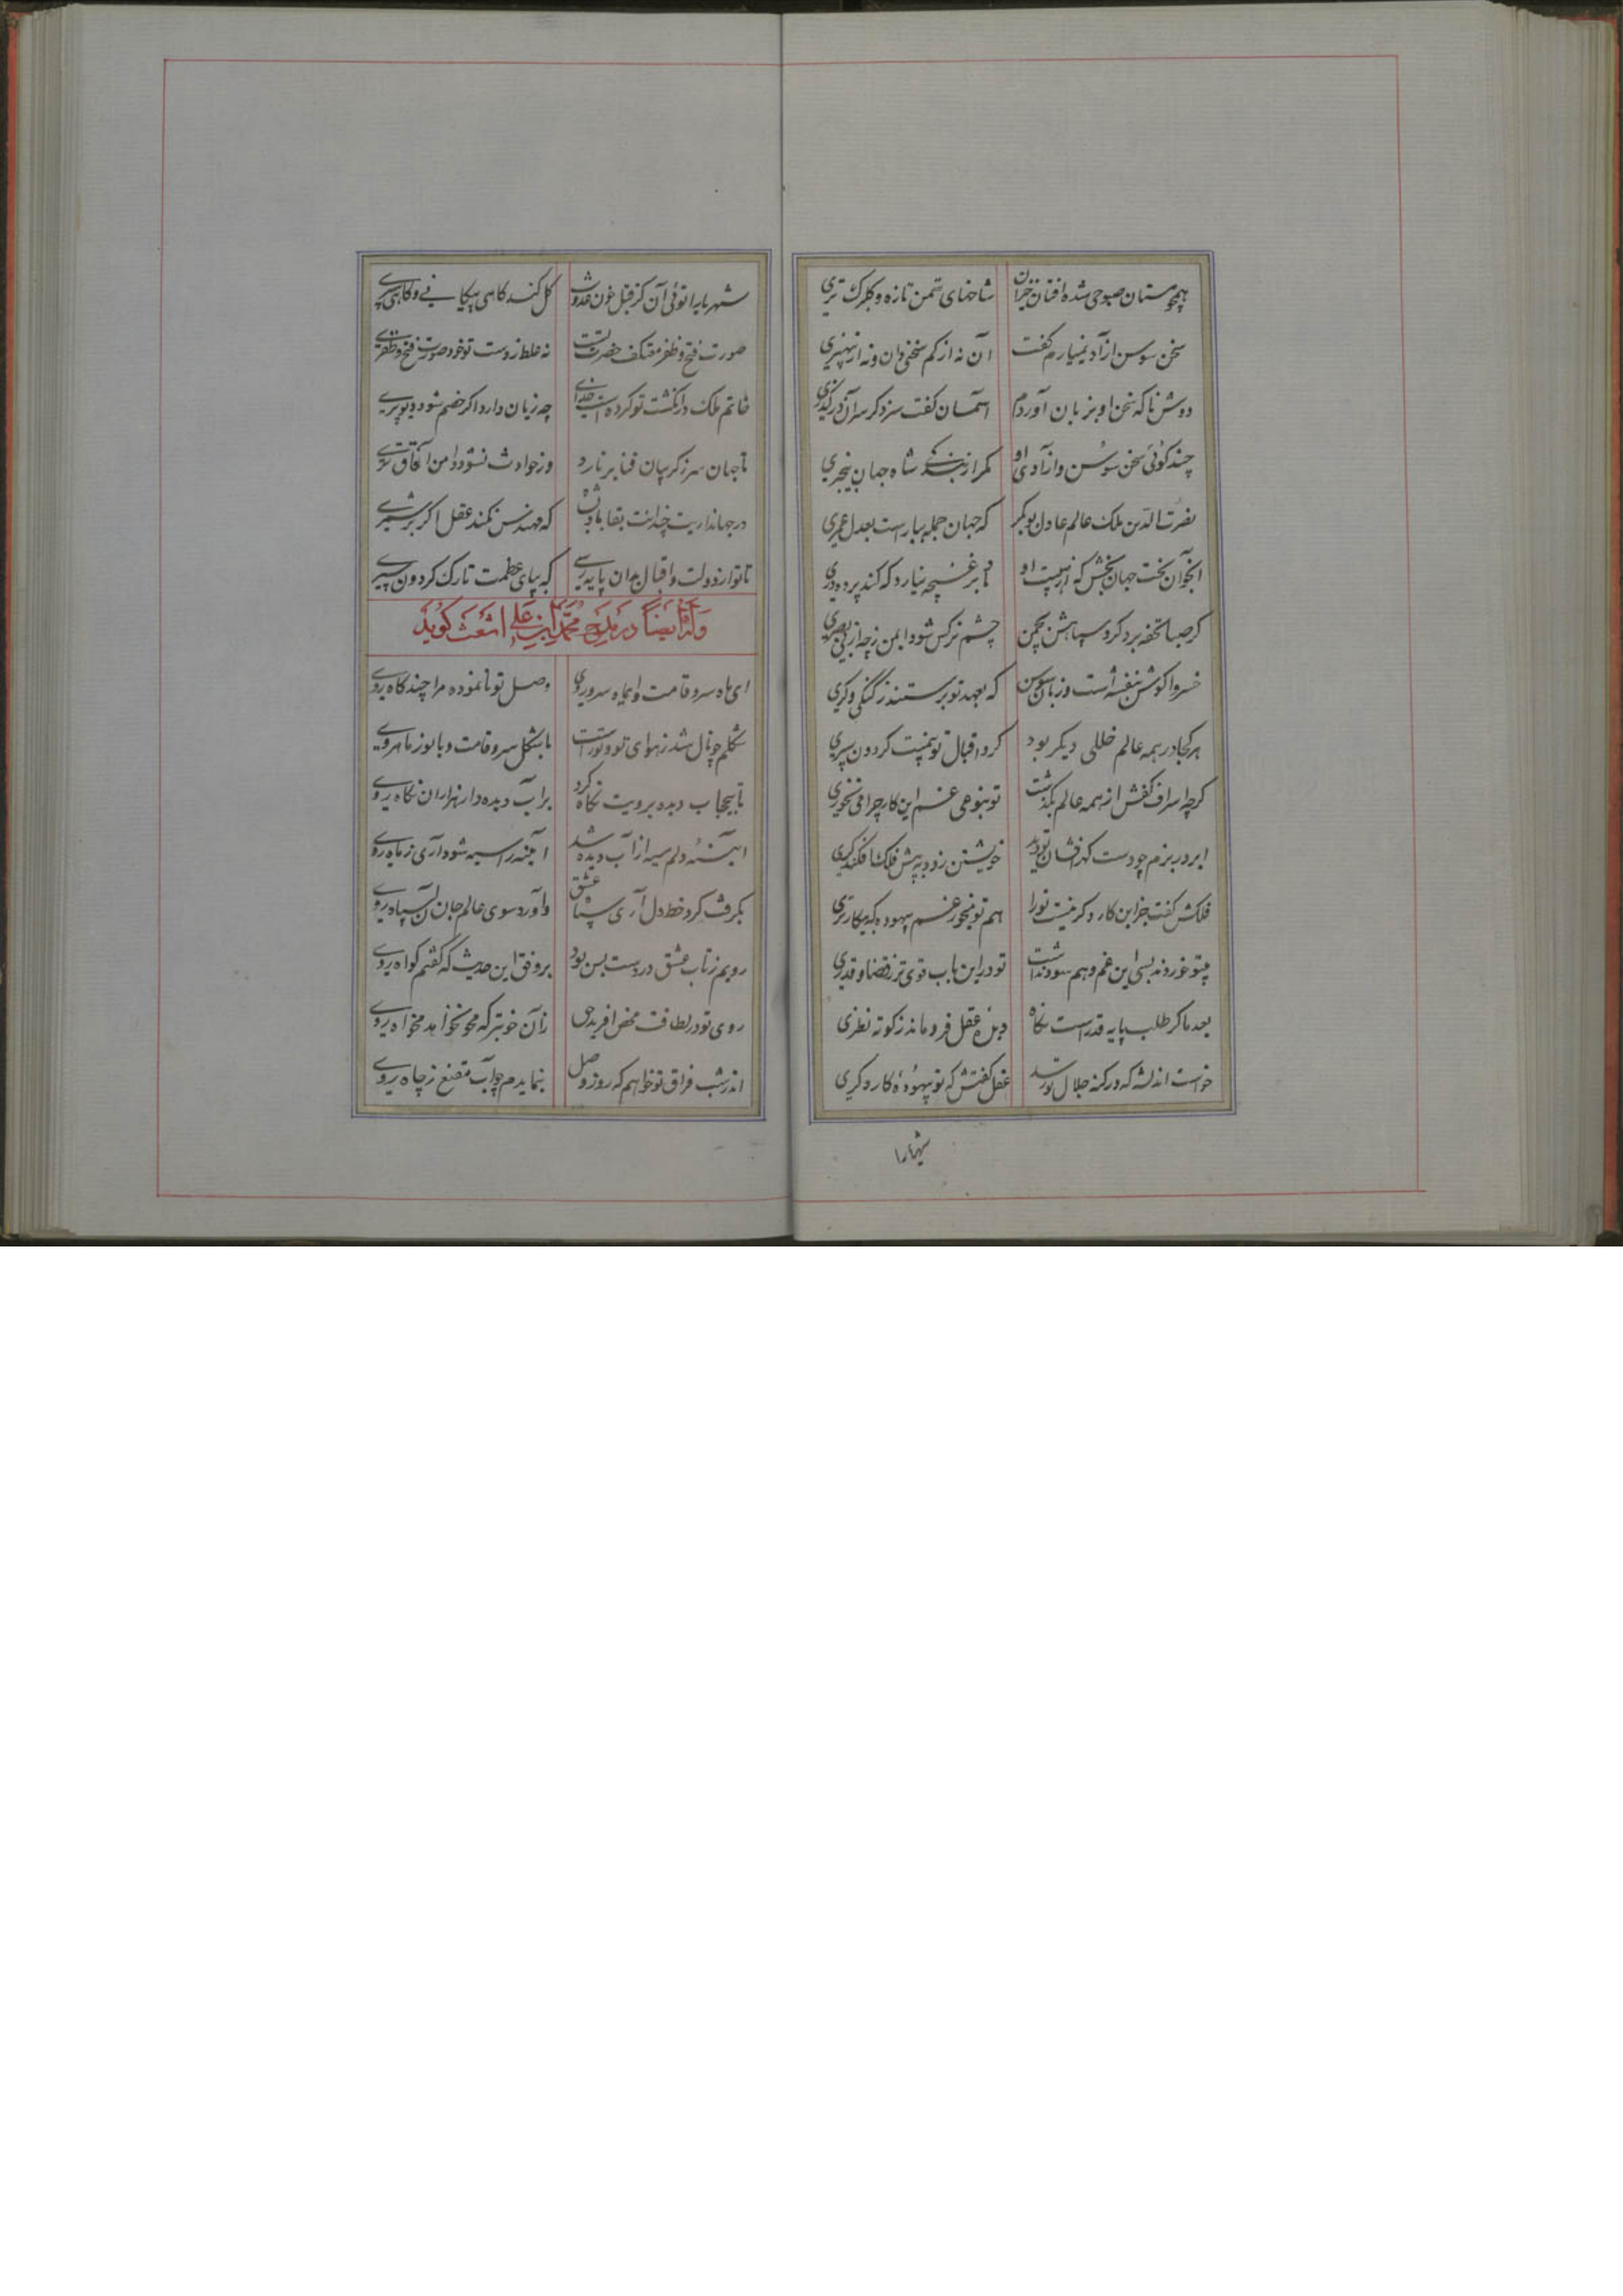 همچو مستان صبوحی شده افتان خیزان شاخهای سمن تازه و گلبرگ تری
سخن سوسن آزاد نمییارم گفت آن نه از کم سخنی دان و نه از بیهنری
دوش ناگه سخن او بزبان آوردم آسمان گفت سزد گر سر آن درگذری
چند گوئی سخن سوسن و آزادی او مگر از بندگی شاه جهان بیخبری
نصرت الدین ملک عالم عادل بوبکر که جهان جمله بیاراست بعدل عمری
آنجوان بخت جهان بخش که از هیبت او باد بر غنچه نیارد که کند پرده دری
گر صبا تحفه برد گرد سپاهش بچمن چشم نرگس شود ایمن ز چه از بی بصری
خسروا گوش بنفشه است و زبان سوسن که بعهد تو برستند ز گنگی و کری
هر کجا در همه عالم خللی دیگر بود کرد اقبال تو
گرچه اسراف کفش از همه عالم بگذشت تو بنوعی غم این کار چرا می نخوری
ابر در بزم چو دست گهر افشان تو دید خویشتن زود به پیش فلک افکند کری
فلکش گفت جز این کار دگر نیست تورا هم تو میخور غم بیهوده که بیکارتری
پیتو خوردند بسی این غم و هم سود نداشت تو در این باب قوی تر ز قضا و قدری
بعد ما کز طلب پایه قدرست نگاه دیده عقل فرو ماند ز کوته نظری
خواست اندیشه که در کنه جلال تو رسد عقل گفتش که تو بیهوده کار دگری
شهریارا
شهریارا توئی آن کز قبل خون عدوت گل کند گاهی پیکانی و گاهی سپری
صورت فتح و ظفر معتکف حضرت تست نه غلط ز دست تو خود صورت فتح و ظفری
خاتم ملک در انگشت تو کرده است خدای چه زیان دارد اگر خصم شود دیو پری
تا جهان سر ز گریبان فنا برنارد وز حوادث نشود دامن آفاق بری
در جهانداریت چندانت بقا باد که مهندس نکند عقل اگر بر شمری
تا تو از دولت و اقبال بدان پایه رسی که بپای عظمت تارک گردون سپری
وله ایضا در مدح محمد بن علی اشعث گوید
ای ماه سرو قامت و ایماه سرو روی وصل تو نانموده مرا چند گاه روی
شکلم چو نال شد ز هوای تو و تو راست با شکل سرو قامت و با نور ماه روی
تا بیحجاب دیده برویت نگاه کرد بر آب دیده دار هزاران نگاه روی
آئینه دلم سیه از آب دیده شد آئینه را سیه شود آری ز ماه روی
بگرفت گرد خط دل آری سپاه عشق وآورد سوی عالم جان آن سپاه روی
رویم ز تاب عشق درست بس بود بر وفق این حدیث که گفتم گواه روی
روی تو در لطافت محض آفریده حق زآن خوبتر که مخواه روی
اندر شب فراق تو خواهم که روز وصل بنمایدم چو آب مقنع ز چاه روی